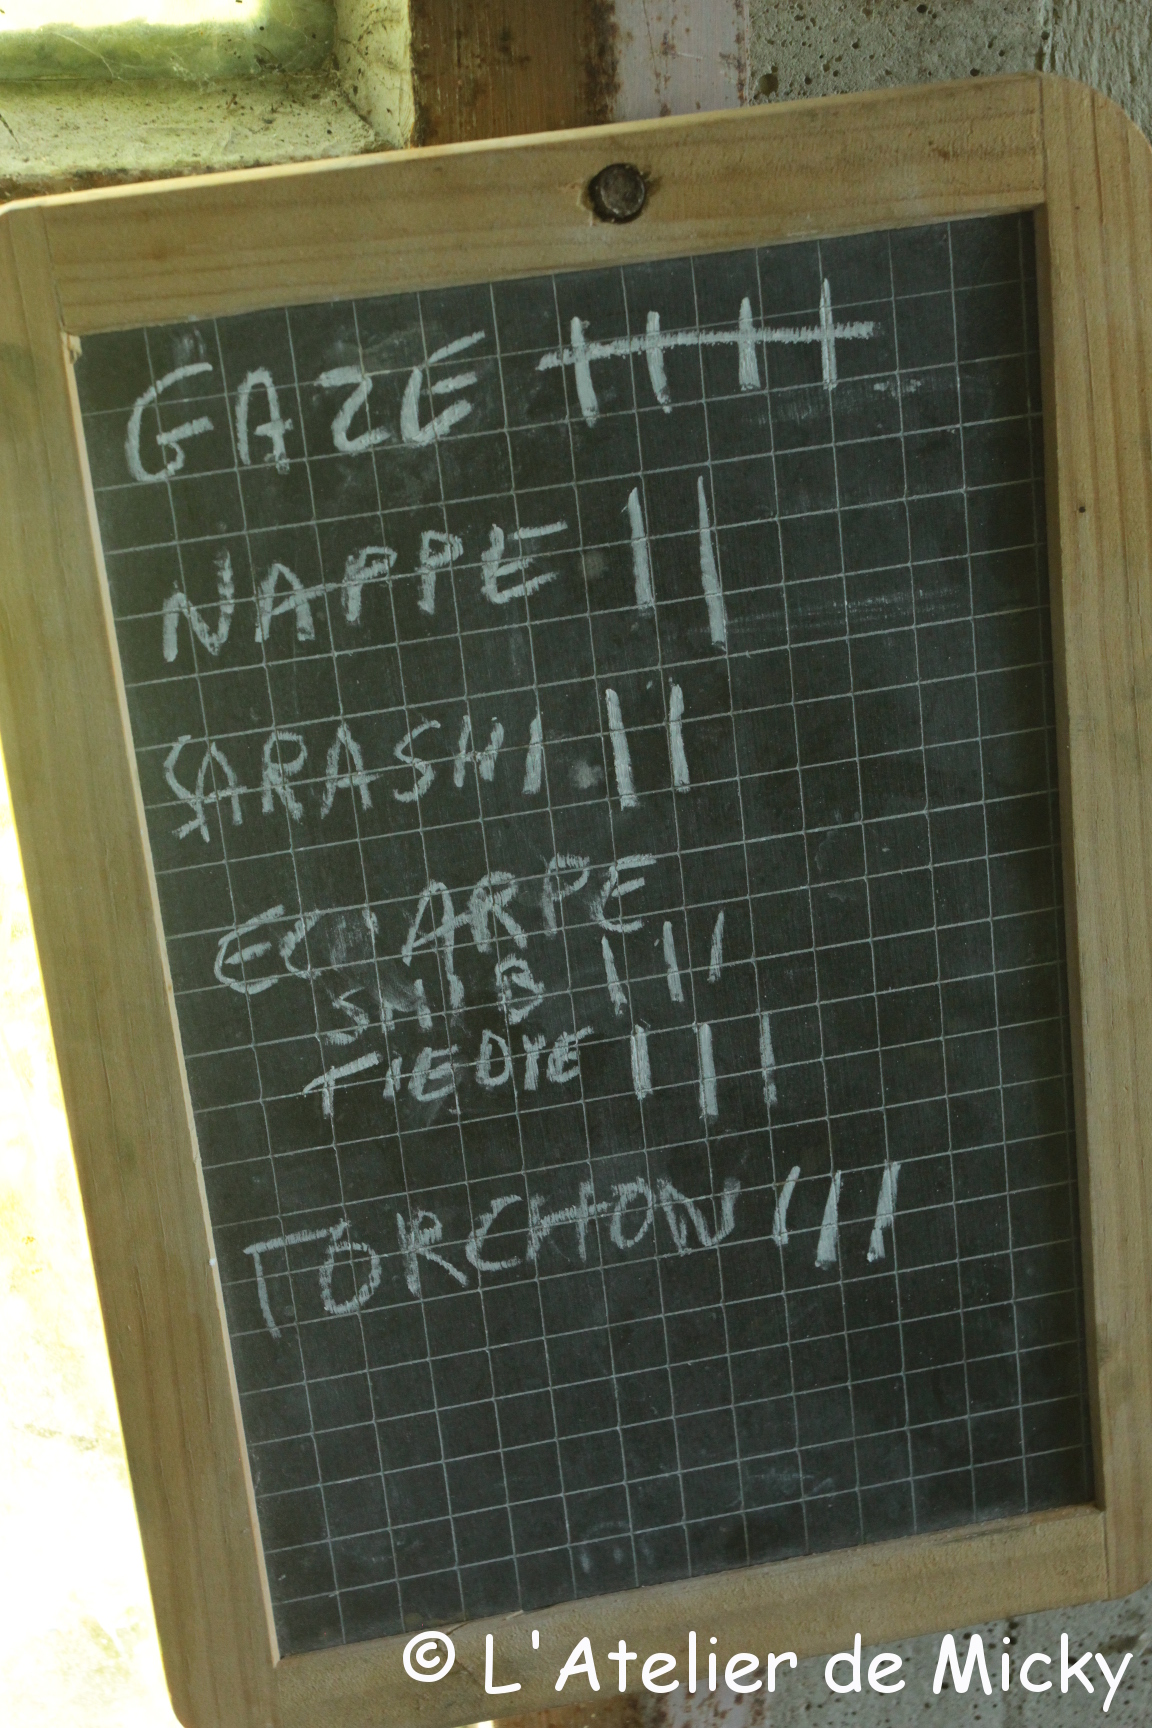 GAZE ||||
NAPPE ||
SARASHI ||
ECHARPE
SHIB |||
TIEDYE |||
TORCHON |||
© L'Atelier de Micky